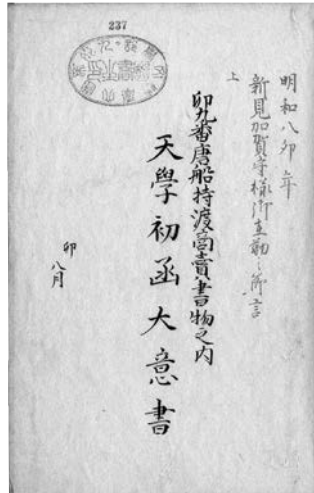 237
明和八卯年
新見加賀守様御在勤之節
上
卯九番唐船持渡商賣書物之内
天學初函大意書
卯
八月